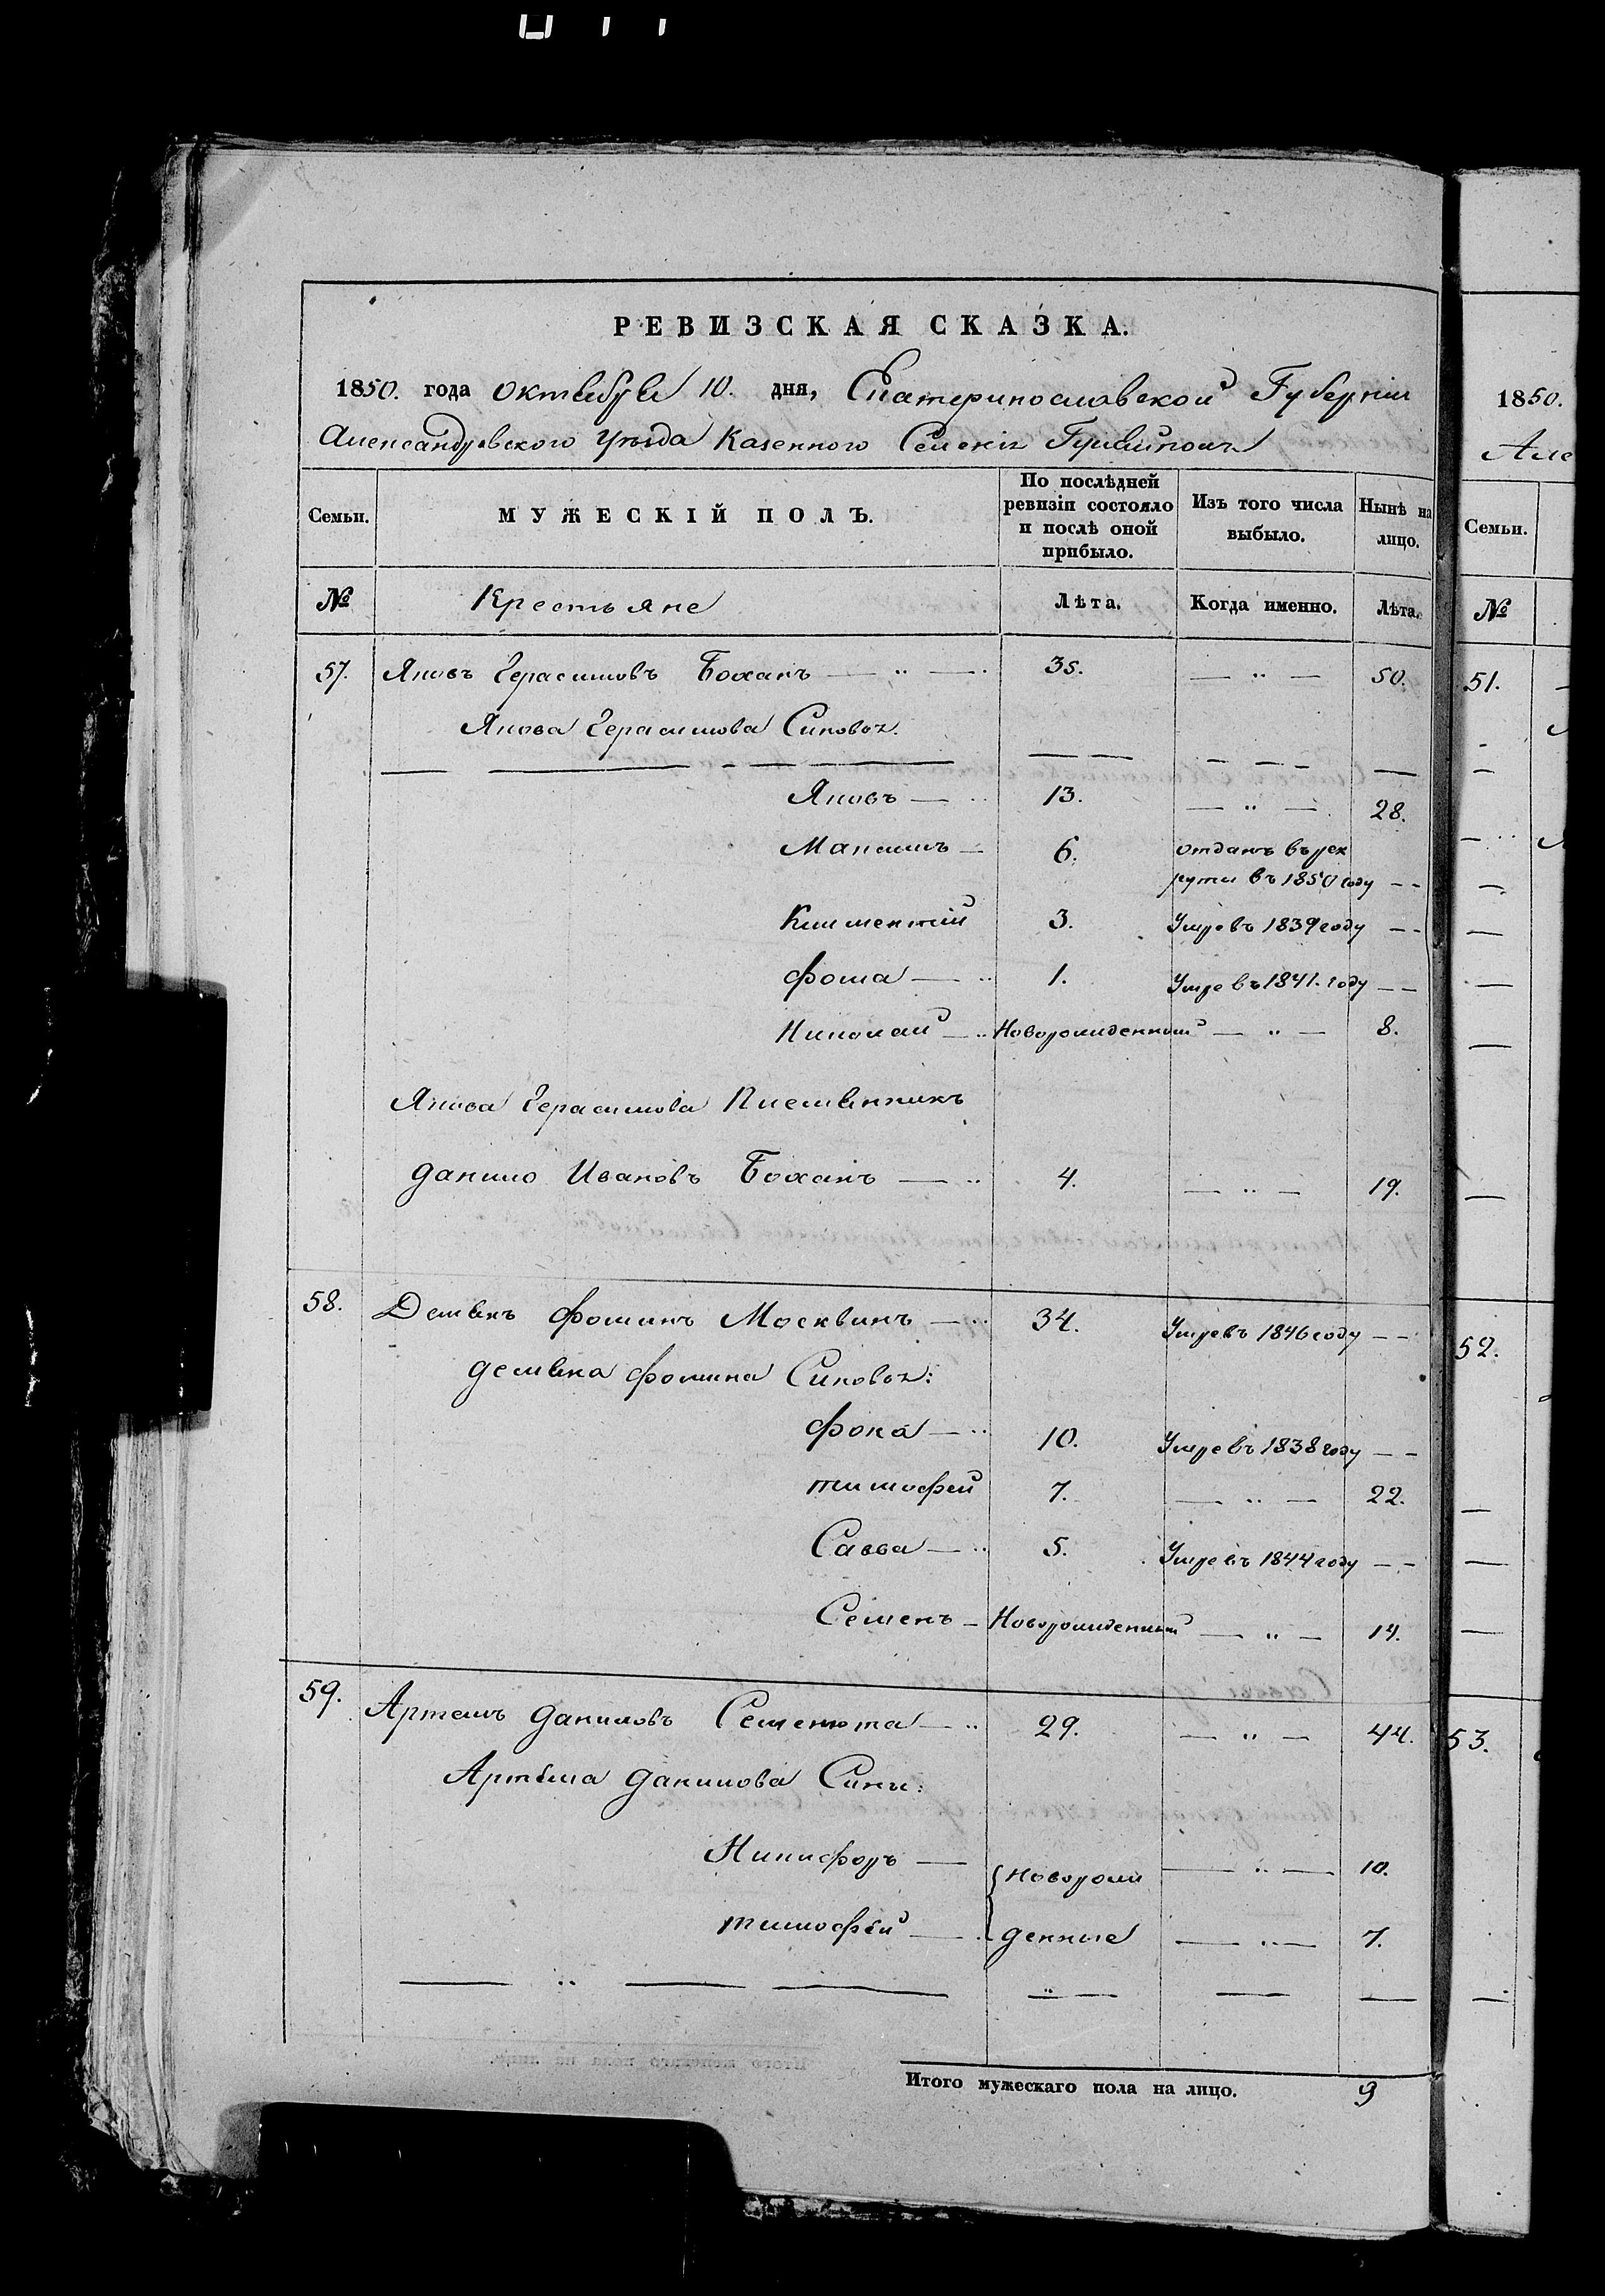 РЕВИЗСКАЯ СКАЗКА.
1850. года Октября 10. дня, Екатеринославской Губернiи
Александровского Уѣзда Казенного Селенiя Гуляйполя
Семьи.
МУЖЕСКIЙ ПОЛЪ.
По послѣдней
ревизiи состояло
и послѣ оной
прибыло.
Изъ того числа
выбыло.
Нынѣ на
лицо.
№ Крестьяне Лѣта. Когда именно. Лѣта.
57. Яковъ Герасимовъ Боханъ — „ — 35. — „ — 50.
Якова Герасимова Синовья.
Яковъ — 13. — „ — 28.
Максимъ — 6. отданъ въ рек
рути въ 1850 году — —
Климентiй 3. Умре въ 1839 году — —
фома — 1. Умре въ 1841. году — —
Николай — Новорожденный — „ — 8.
Якова Герасимова Племянникъ
данило Ивановъ Боханъ — 4. — „ — 19.
58. Демянъ Фоминъ Москвинъ — 34. Умре въ 1846 году — —
демяна фомина Синовья:
фока — 10. Умре въ 1838 году — —
тимофей 7. — „ — 22.
Савва — 5. Умре въ 1844 году — —
Семенъ — Новорожденный — „ — 14.
59. Артемъ даниловъ Семенюта — 29. — „ — 44.
Артема данилова Сины:
Никифоръ — { новорож — „ — 10.
тимофѣй — денные — „ — 7.
Итого мужескаго пола на лицо. 9
1850.
Але
Семьи.
№
51.
52.
53.